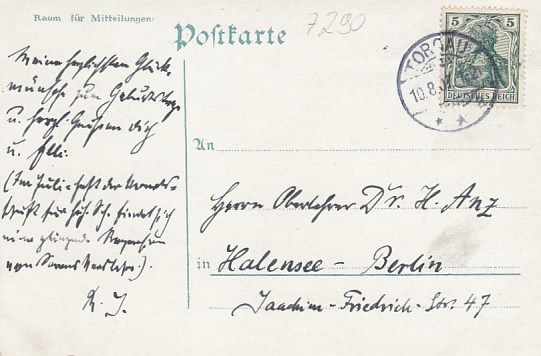 Raum für Mitteilungen:
7290
Postkarte
5 5
DEUTSCHES REICH
TORGAU
10.8.
Meine herzlichsten Glück-
wünsche zum Geburtstage
u. herzl. Grüßen dich
u. Elli.
(Im Juli-Heft der Monats-
schrift für höh. Sch. findet sich
eine
von
K. J.
An
Herrn Oberlehrer Dr. H. Anz
in Halensee - Berlin
Joachim-Friedrich-Str. 47